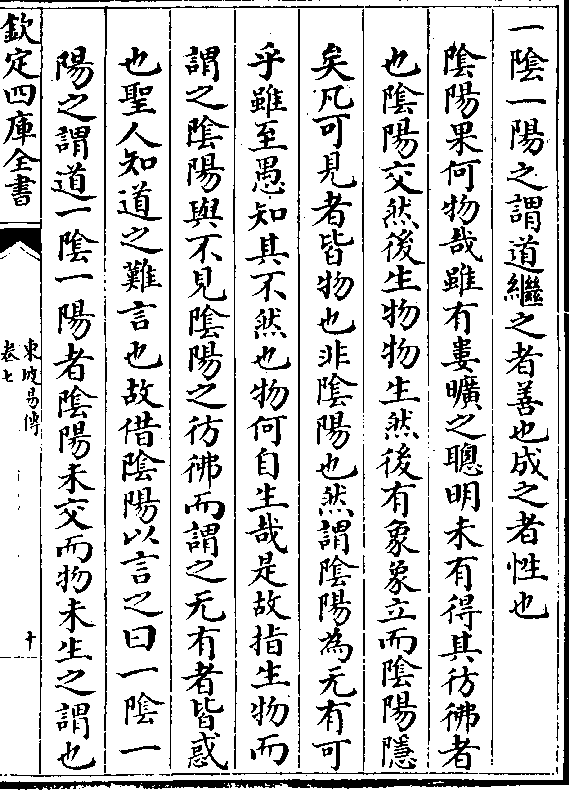 一陰一陽之謂道繼之者善也成之者性也
陰陽果何物哉雖有婁曠之聰明未有得其彷彿者
也陰陽交然後生物物生然後有象象立而陰陽隱
矣凡可見者皆物也非陰陽也然謂陰陽為无有可
乎雖至愚知其不然也物何自生哉是故指生物而
謂之陰陽與不見陰陽之彷彿而謂之无有者皆惑
也聖人知道之難言也故借陰陽以言之曰一陰一
陽之謂道一陰一陽者陰陽未交而物未生之謂也
欽定四庫全書
東坡易傳
卷七
十